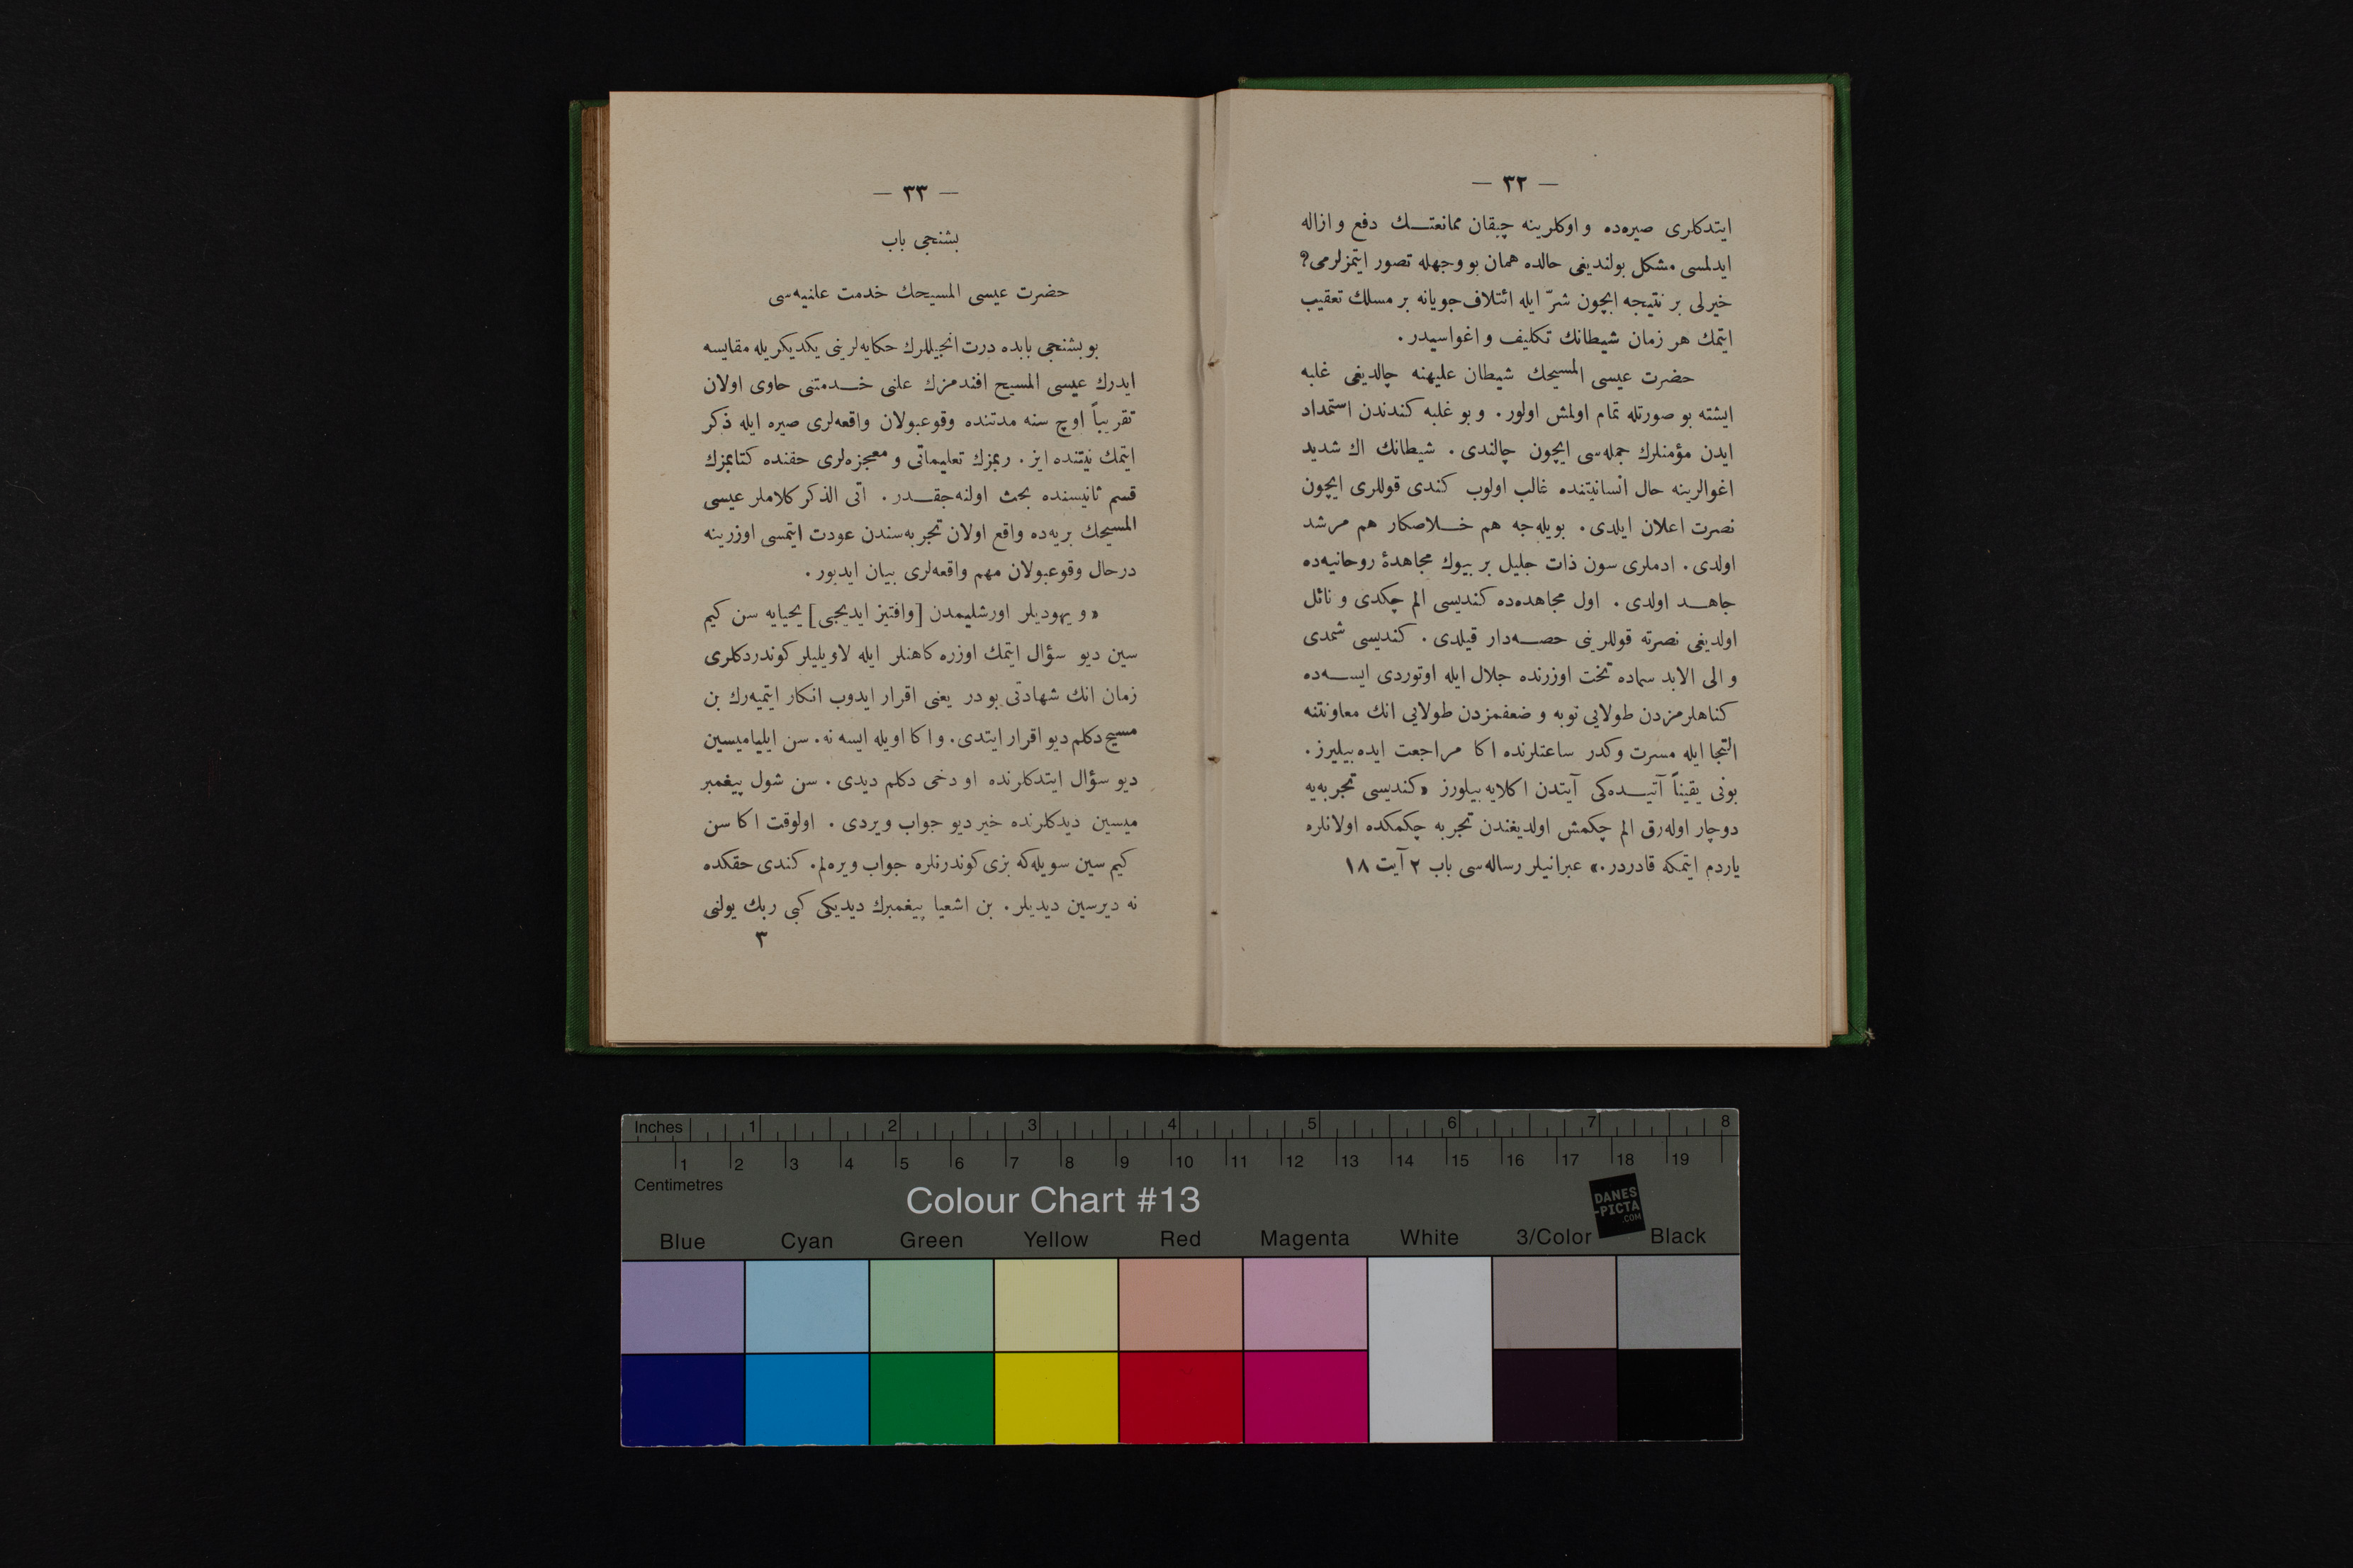 — ٣٢ —
ایتدكلری صیره‌ده و اوكلرینه چیقان ممانعتـــك دفع و ازاله
ایدلمسی مشكل بولندیغی حالده همان بو وجهله تصور ایتمزلرمی؟
خیرلی بر نتیجه ایچون شرّ ایله ائتلاف‌جویانه بر مسلك تعقیب
ایتمك هر زمان شیطانك تكلیف و اغواسیدر.
حضرت عیسی المسیحك شیطان علیهنه چالدیغی غلبه
ایشته بو صورتله تمام اولمش اولور. و بو غلبه كندندن استمداد
ایدن مؤمنلرك جمله‌سی ایچون چالندی. شیطانك اك شدید
اغوالرینه حال انسانیتنده غالب اولوب كندی قوللری ایچون
نصرت اعلان ایلدی. بویله‌جه هم خـــلاصكار هم مرشد
اولدی. ادملری سون ذات جلیل بر بیوك مجاهدهٔ روحانیه‌ده
جاهـــد اولدی. اول مجاهده‌ده كندیسی الم چكدی و نائل
اولدیغی نصرته قوللرینی حصـــه‌دار قیلدی. كندیسی شمدی
و الی الابد سماده تخت اوزرنده جلال ایله اوتوردی ایســـه‌ده
كناهلرمزدن طولایی توبه و ضعفمزدن طولایی انك معاونتنه
التجا ایله مسرت وكدر ساعتلرنده اكا مراجعت ایده بیلیرز.
بونی یقیناً آتیـــده‌كی آیتدن اكلایه بیلورز «كندیسی تجربه‌یه
دوچار اوله‌رق الم چكمش اولدیغندن تجربه چكمكده اولانلره
یاردم ایتمكه قادردر.» عبرانیلر رساله‌سی باب ٢ آیت ١٨
— ٣٣ —
بشنجی باب
حضرت عیسی المسیحك خدمت علنیه‌سی
بو بشنجی بابده درت انجیللرك حكایه‌لرینی یكدیكریله مقایسه
ایدرك عیسی المسیح افندمزك علنی خـــدمتنی حاوی اولان
تقریباً اوچ سنه مدتنده وقوعبولان واقعه‌لری صیره ایله ذكر
ایتمك نیتنده ایز. ربمزك تعلیماتی و معجزه‌لری حقنده كتابمزك
قسم ثانیسنده بحث اولنه‌جقـــدر. اتی الذكر كلاملر عیسی
المسیحك بریه‌ده واقع اولان تجربه‌سندن عودت ایتمسی اوزرینه
درحال وقوعبولان مهم واقعه‌لری بیان ایدیور.
«و یهودیلر اورشلیمدن [وافتیز ایدیجی] یحیایه سن كیم
سین دیو سؤال ایتمك اوزره كاهنلر ایله لاویلیلر كوندردكلری
زمان انك شهادتی بودر یعنی اقرار ایدوب انكار ایتمیه‌رك بن
مسیح دكلم دیو اقرار ایتدی. و اكا اویله ایسه نه. سن ایلیامیسین
دیو سؤال ایتدكلرنده او دخی دكلم دیدی. سن شول پیغمبر
میسین دیدكلرنده خیر دیو جواب ویردی. اولوقت اكا سن
كیم سین سویله‌كه بزی كوندرنلره جواب ویره‌لم. كندی حقكده
نه دیرسین دیدیلر. بن اشعیا پیغمبرك دیدیكی كبی ربك یولنی
٣
Inches 1 2 3 4 5 6 7 8
1 2 3 4 5 6 7 8 9 10 11 12 13 14 15 16 17 18 19
Centimetres
Colour Chart #13
DANES
-PICTA
.COM
Blue Cyan Green Yellow Red Magenta White 3/Color Black